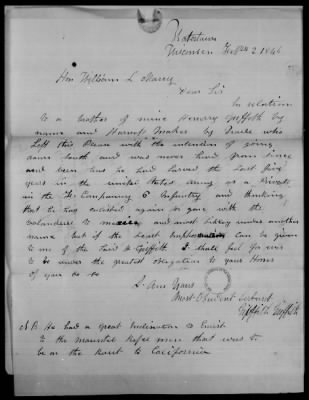 Watertown
Wisconsin Feby 2 1846
Hon William L. Marcy
Dear Sir
In relation
to a brother of mine Griffith by
name and Harness Maker by Trade who
Left this Place with the intention of going
down South and was never heard from since
and been has he had served the Last five
years in the united States army as a Private
in the 7th Company E Infantry and thinking
that he has enlisted again or gone with the
volunteers to mexico and most likely under another
name but if the Least can be given
to me of the Said Griffith I shall feel for ever
to under the greatest obligation to your Honor
if you do so
I am Yours
Most Obedient Servant
Griffith Griffith
N B He had a great Inclination to Enlist
to the Mounted Rifle men that was to
be on the Rout to California